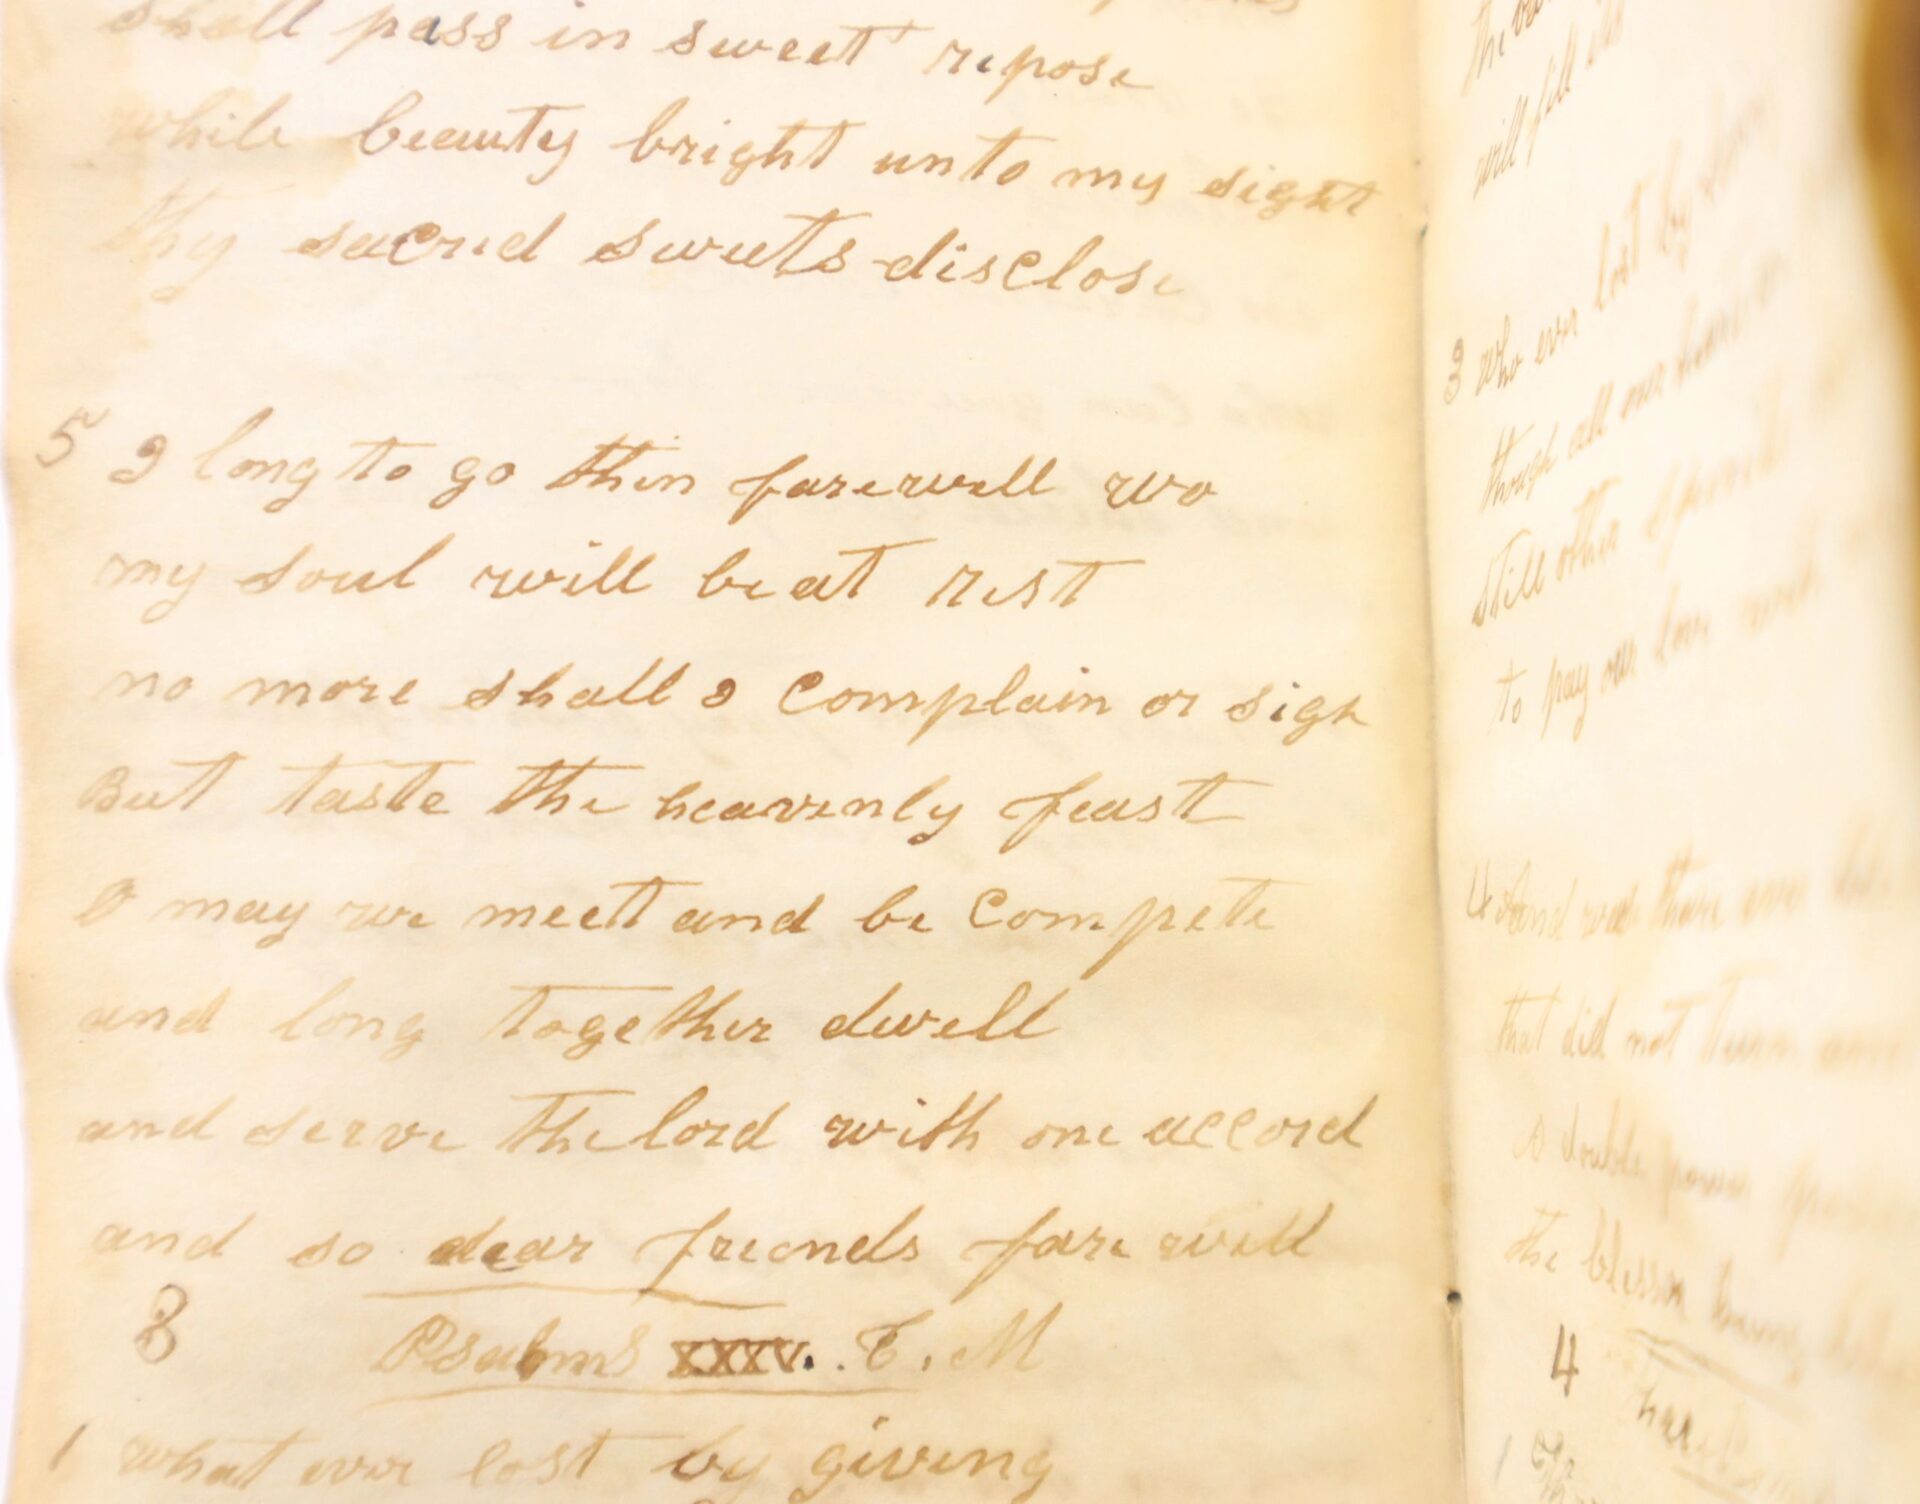 shall pass in sweet repose
while beauty bright unto my sight
thy sacrid sweets disclose
5 I long to go then farewell wo
my soul will be at rest
no more shall I complain or sigh
But taste the heavenly feast
O may we meet and be compete
and long together dwell
and serve the lord with one accord
and so dear friends fare well
3
Psalms XXXV. C. M
1 what ever lost by giving
the
will fill
3 who ever lost by
though all our
still other
to pay our love
4 And was there ever
that did not turn
a double power
the blessin
4
1